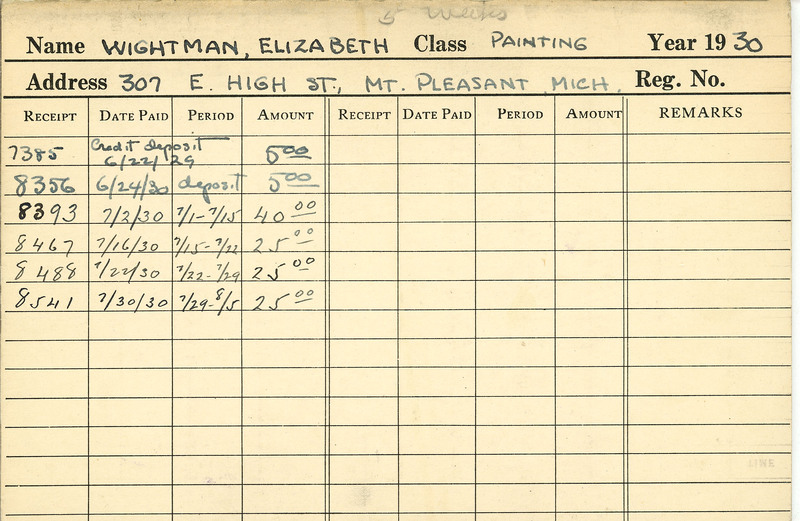 5 Weeks
Name WIGHTMAN, ELIZABETH Class PAINTING Year 19 30
Address 307 E. HIGH ST., MT. PLEASANT MICH. Reg. No.
RECEIPT DATE PAID PERIOD AMOUNT RECEIPT DATE PAID PERIOD AMOUNT REMARKS
7385 Credit deposit 6/22/29 5 00
8356 6/24/30 deposit 5 00
8393 7/2/30 7/1-7/15 40 00
8467 7/16/30 7/15-7/22 25 00
8488 7/22/30 7/22-7/29 25 00
8541 7/30/30 7/29-8/5 25 00
LINE